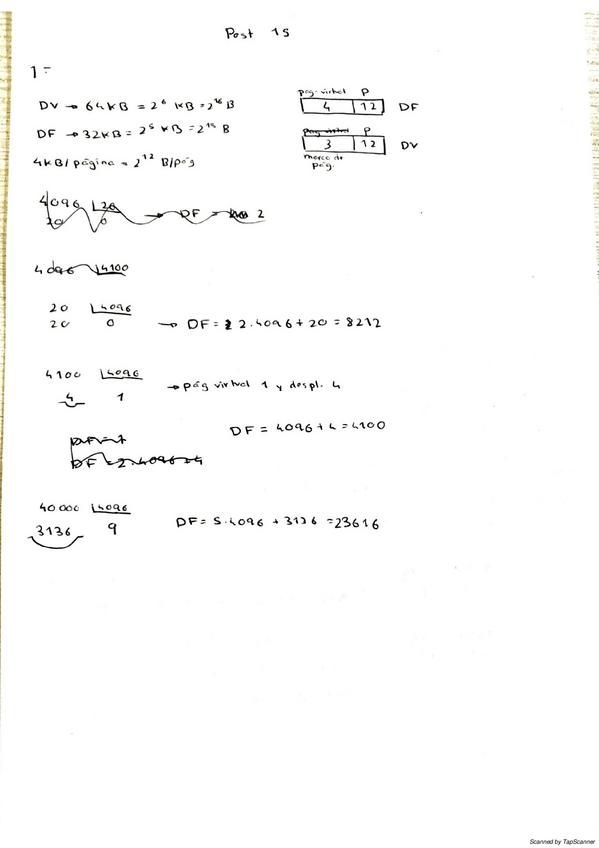 Post 15
1=
pag. virtual P
DV → 64KB = 2^6 KB = 2^16 B
4 | 12 DF
DF → 32KB = 2^5 KB = 2^15 B
pag virtual P
3 | 12 DV
marco de
pág.
4KB/página = 2^12 B/pág
4096 | 20
20 0 → DF = 2
4096 | 4100
20 | 4096
20 0 → DF = 2.4096 + 20 = 8212
4100 | 4096
4 1 → pág virtual 1 y despl. 4
DF = 4096 + 4 = 4100
DF = 2.4096 + 4
40000 | 4096
3136 9 DF = 5.4096 + 3136 = 23616
Scanned by TapScanner